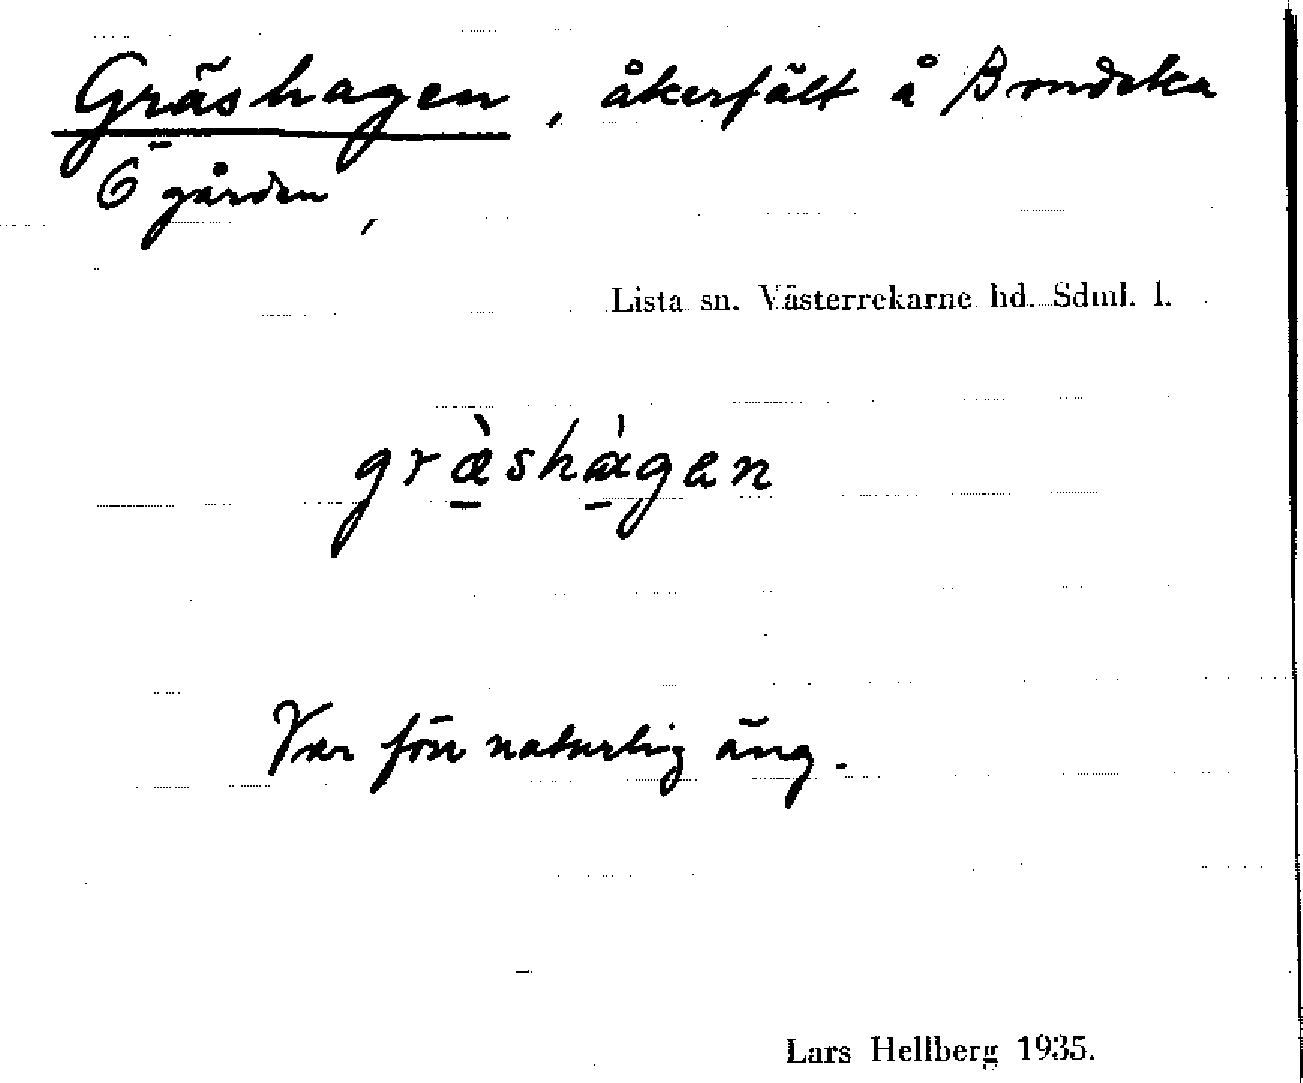 Gräshagen, åkerfält å Brudska
Ö gården,
Lista sn. Västerrekarne hd. Sdml. l.
græ̀shágen
Var förr naturlig äng.
Lars Hellberg 1935.